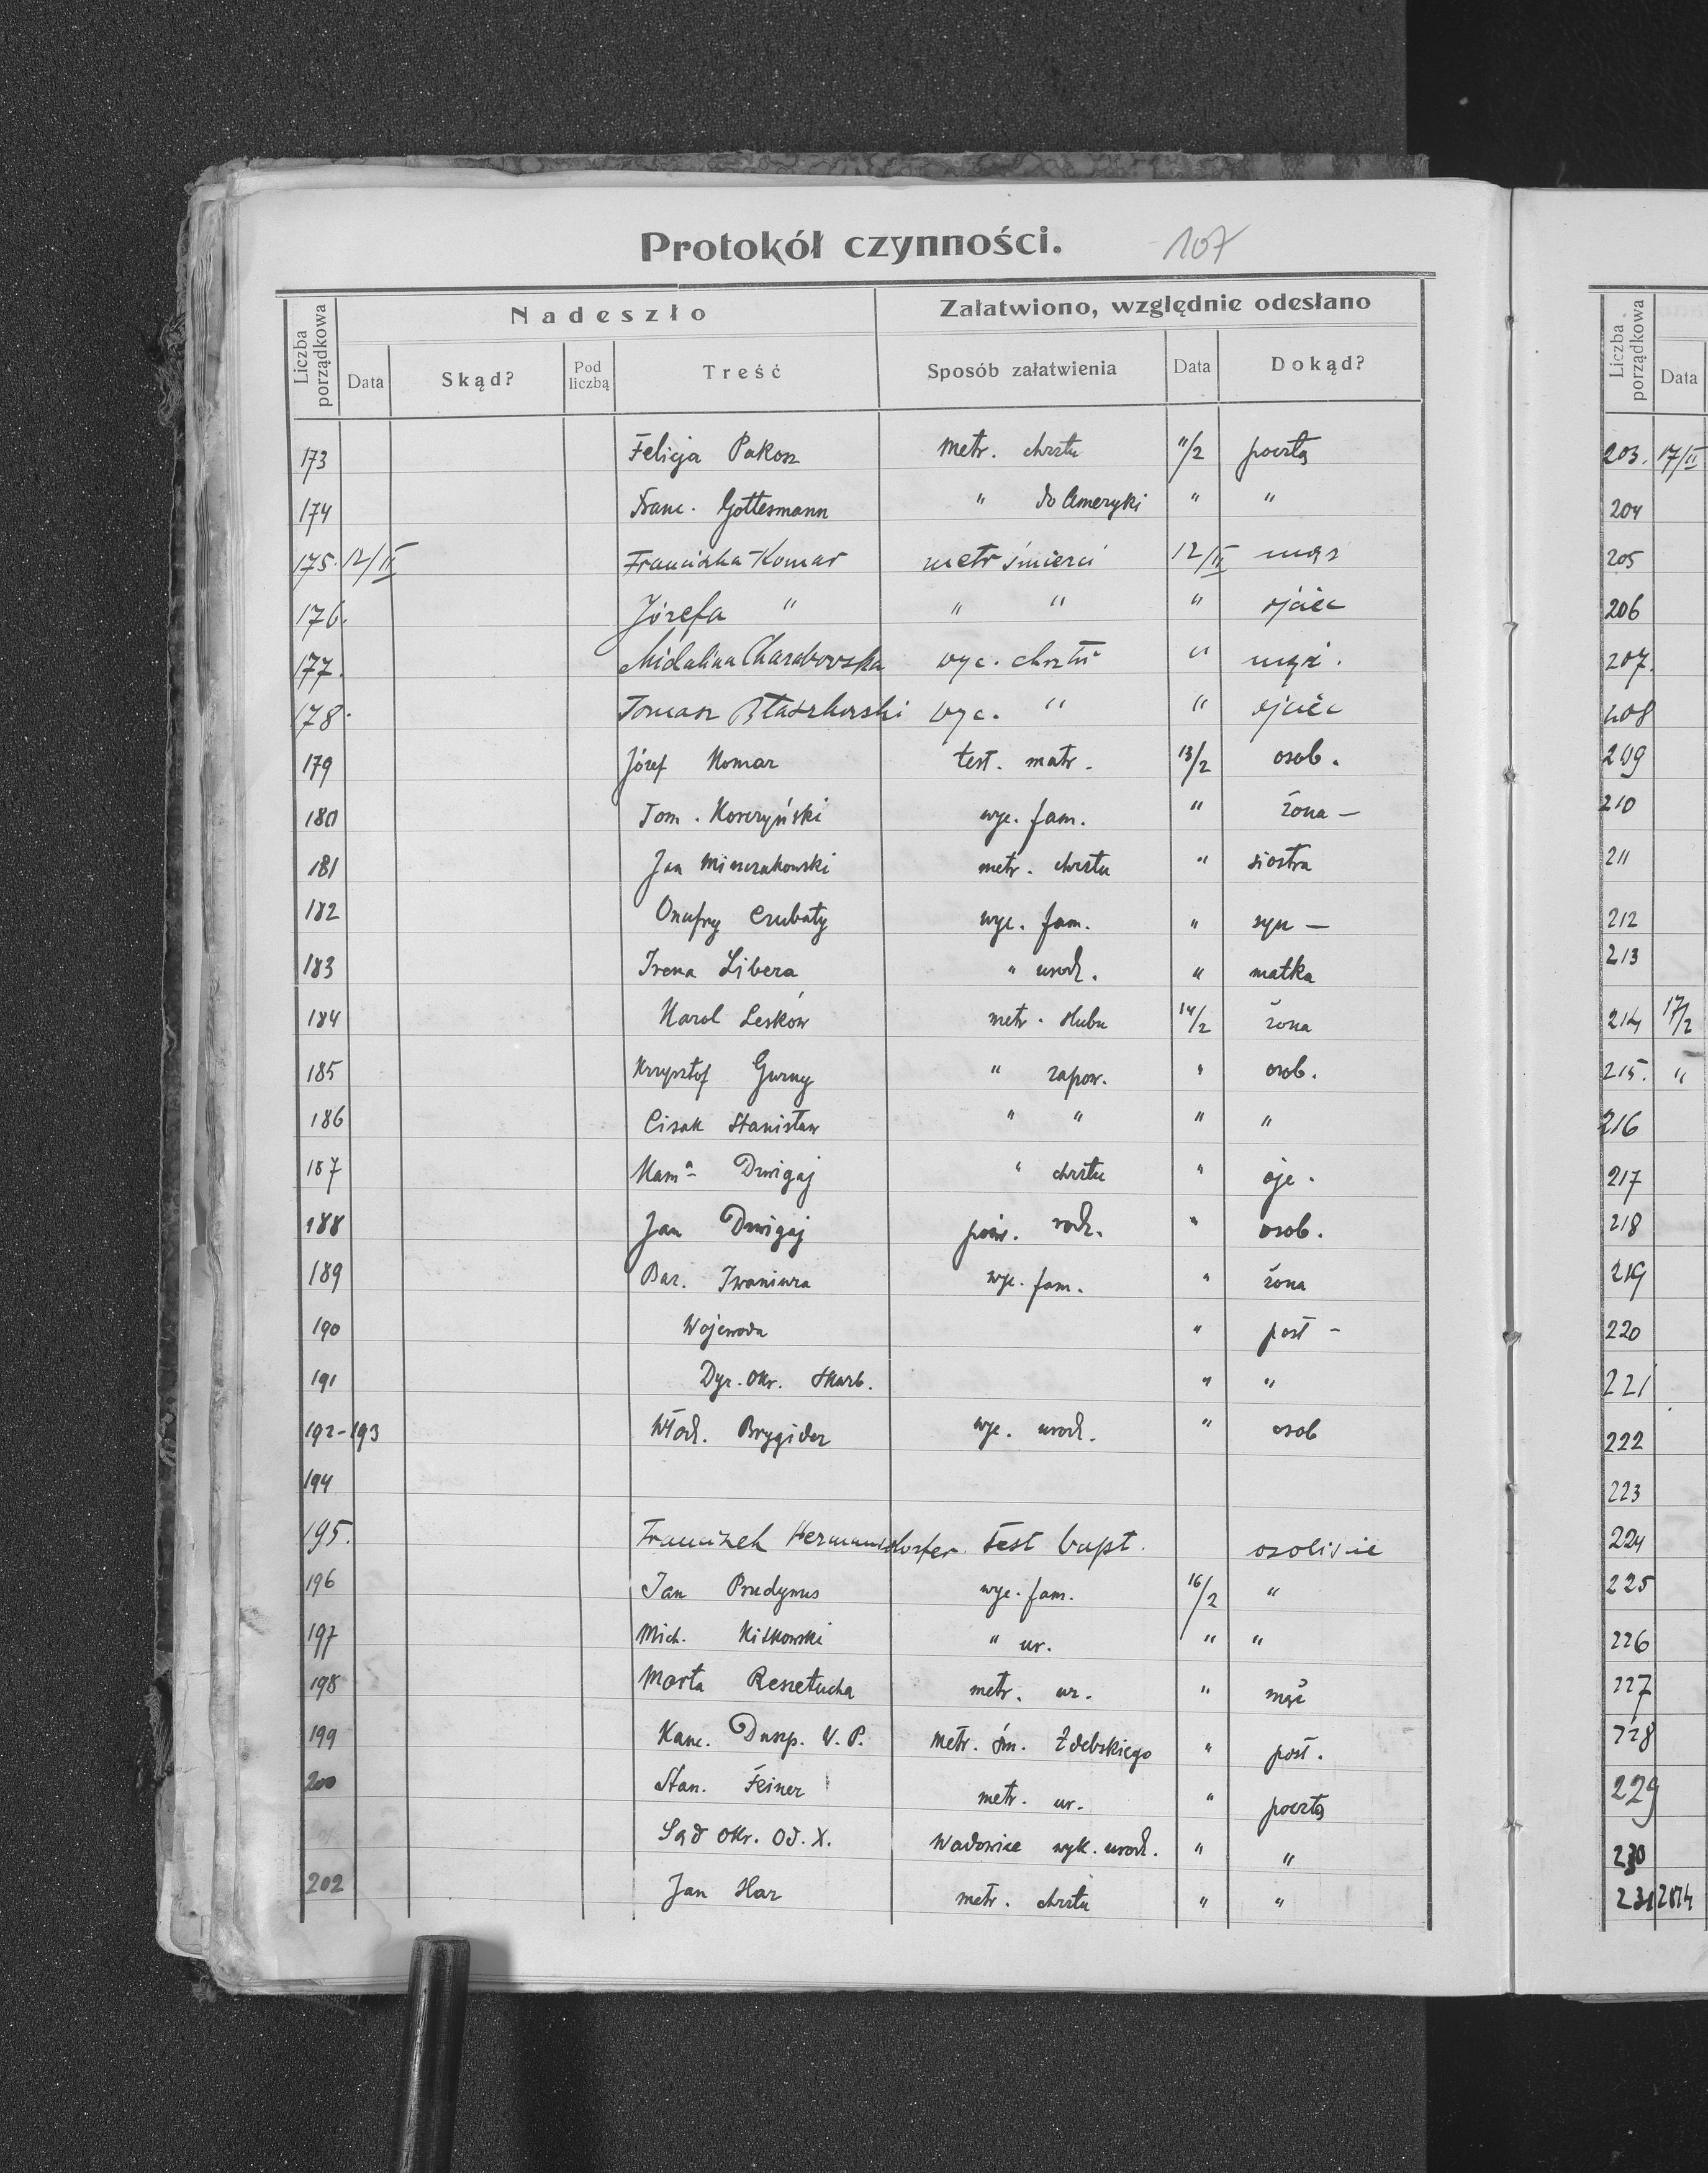 Protokół czynności. 107
Liczba porządkowa
Nadeszło
Załatwiono, względnie odesłano
Data Skąd? Pod liczbą Treść Sposób załatwienia Data Dokąd?
173 Felicja Pakosz metr. chrztu 11/2 pocztą
174 Franc. Gottesmann " do Ameryki " "
175. 12/II Franciszka Komar metr śmierci 12/II mąż
176. Józefa " " " " ojciec
177. wyc. chrztu " mąż.
178. Tomasz Błaszkowski wyc. " " ojciec
179 Józef Komar test. matr. 13/2 osob.
180 Tom. Korczyński wyc. fam. " żona —
181 Jan metr. chrztu " siostra
182 Onufry Czubaty wyc. fam. " syn —
183 Irena Libera " urodz. " matka
184 Karol Leśków metr. ślubu 14/2 żona
185 Krzysztof Gurny " zapow. " osob.
186 Cisak Stanisław " " " "
187 Dźwigaj " chrztu " ojc.
188 Jan Dźwigaj rodz. " osob.
189 Baz. Iwaniura wyc. fam. " żona
190 Wojewoda " post -
191 Dyr. Okr. Skarb. " "
192-193 Włodz. Brygider wyc. urodz. " osob
194
195. Franciszek Hermannsdorfer. Test bapt. osobiście
196 Jan Prudymus wyc. fam. 16/2 "
197 Mich. Kitkowski " ur. " "
198 Marta Reszetucha metr. ur. " mąż
199 Kanc. Duszp. W. P. metr. śm. Zdebskiego " post.
200 Stan. Feiner metr. ur. " pocztą
Sąd Okr. Od. X. Wadowice wyk. urodz. " "
202 Jan Har metr. chrztu " "
Liczba porządkowa Data
203. 17/II
204
205
206
207.
208
209
210
211
212
213
214 17/2
215. "
216
217
218
219
220
221
222
223
224
225
226
227
228
229
230
231